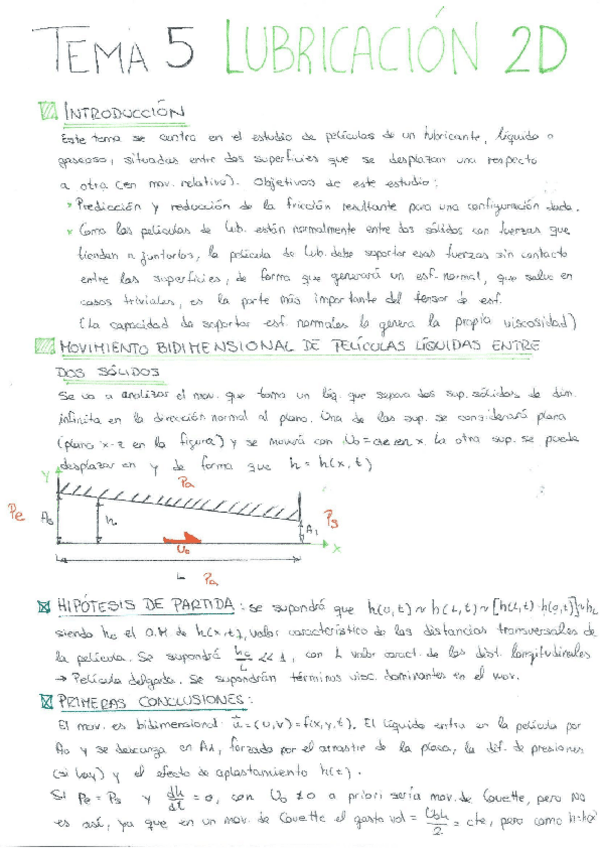 TEMA 5 LUBRICACIÓN 2D
INTRODUCCIÓN
Este tema se centra en el estudio de películas de un lubricante, líquido o
gaseoso, situadas entre dos superficies que se desplazan una respecto
a otra (en mov. relativo). Objetivos de este estudio:
* Predicción y reducción de la fricción resultante para una configuración dada.
* Como las películas de lub. están normalmente entre dos sólidos con fuerzas que
tienden a juntarlos, la película de lub. debe soportar esas fuerzas sin contacto
entre las superficies, de forma que generará un esf. normal, que salvo en
casos triviales, es la parte más importante del tensor de esf.
(La capacidad de soportar esf. normales la genera la propia viscosidad)
MOVIMIENTO BIDIMENSIONAL DE PELÍCULAS LÍQUIDAS ENTRE
DOS SÓLIDOS
Se va a analizar el mov. que toma un líq. que separa dos sup. sólidas de dim.
infinita en la dirección normal al plano. Una de las sup. se considerará plana
(plano x-z en la figura) y se moverá con U₀ = cte en x. La otra sup. se puede
desplazar en y de forma que h = h(x,t)
Y
Pa
Pe
A₀
h
Ps
A₁
U₀
X
L
Pa
HIPÓTESIS DE PARTIDA: se supondrá que h(0,t) ~ h(L,t) ~ [h(L,t)-h(0,t)] ~ h₀
siendo h₀ el O.M. de h(x,t), valor característico de las distancias transversales de
la película. Se supondrá h₀/L << 1, con L valor caract. de las dist. longitudinales
→ Película delgada. Se supondrán términos visc. dominantes en el mov.
PRIMERAS CONCLUSIONES:
El mov. es bidimensional: u = (u,v) = f(x,y,t). El líquido entra en la película por
A₀ y se descarga en A₁, forzado por el arrastre de la placa, la dif. de presiones
(si hay) y el efecto de aplastamiento h(t).
Si Pe = Ps y dh/dt = 0, con U₀ ≠ 0 a priori sería mov. de Couette, pero NO
es así, ya que en un mov. de Couette el gasto vol = U₀h/2 = cte, pero como h=h(x)